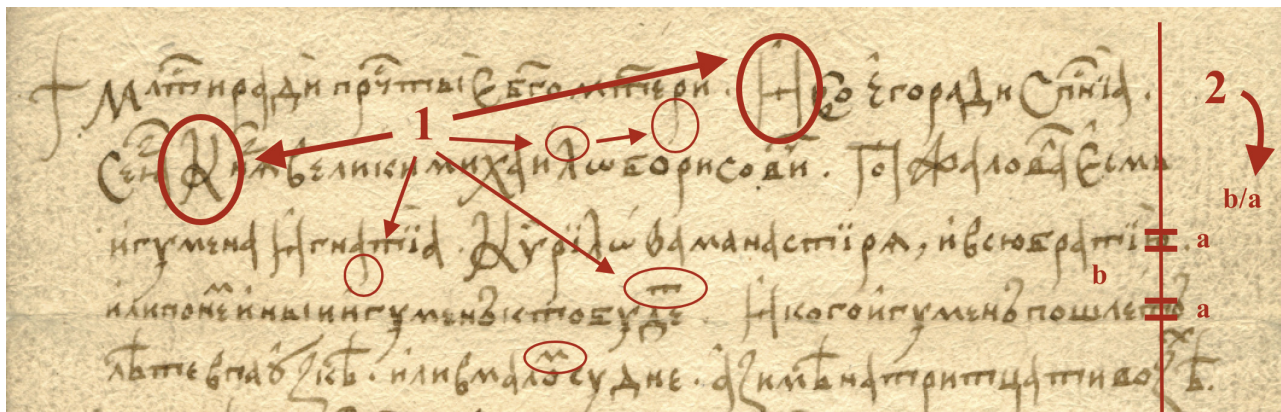 Млⷭ҇ти ради прⷱ҇тыꙗ Е бг҃омт҃ери . И ег҃о ради Сп҃нїа . 2
1
Се Кн҃зь великии михаилѡ борисовⷱ҇и . пожаловаⷧ Есми
b/a
игумена Игнатїа Курїлѡва манастїрѧ , и всю братїю . a
b
или по не иныи игуменъ кто буде . И кого игуменъ пошлетъ a
лѣте в паузкѣ . или в малоⷨ судне . а зимѣ на тритцати возѣⷯ .